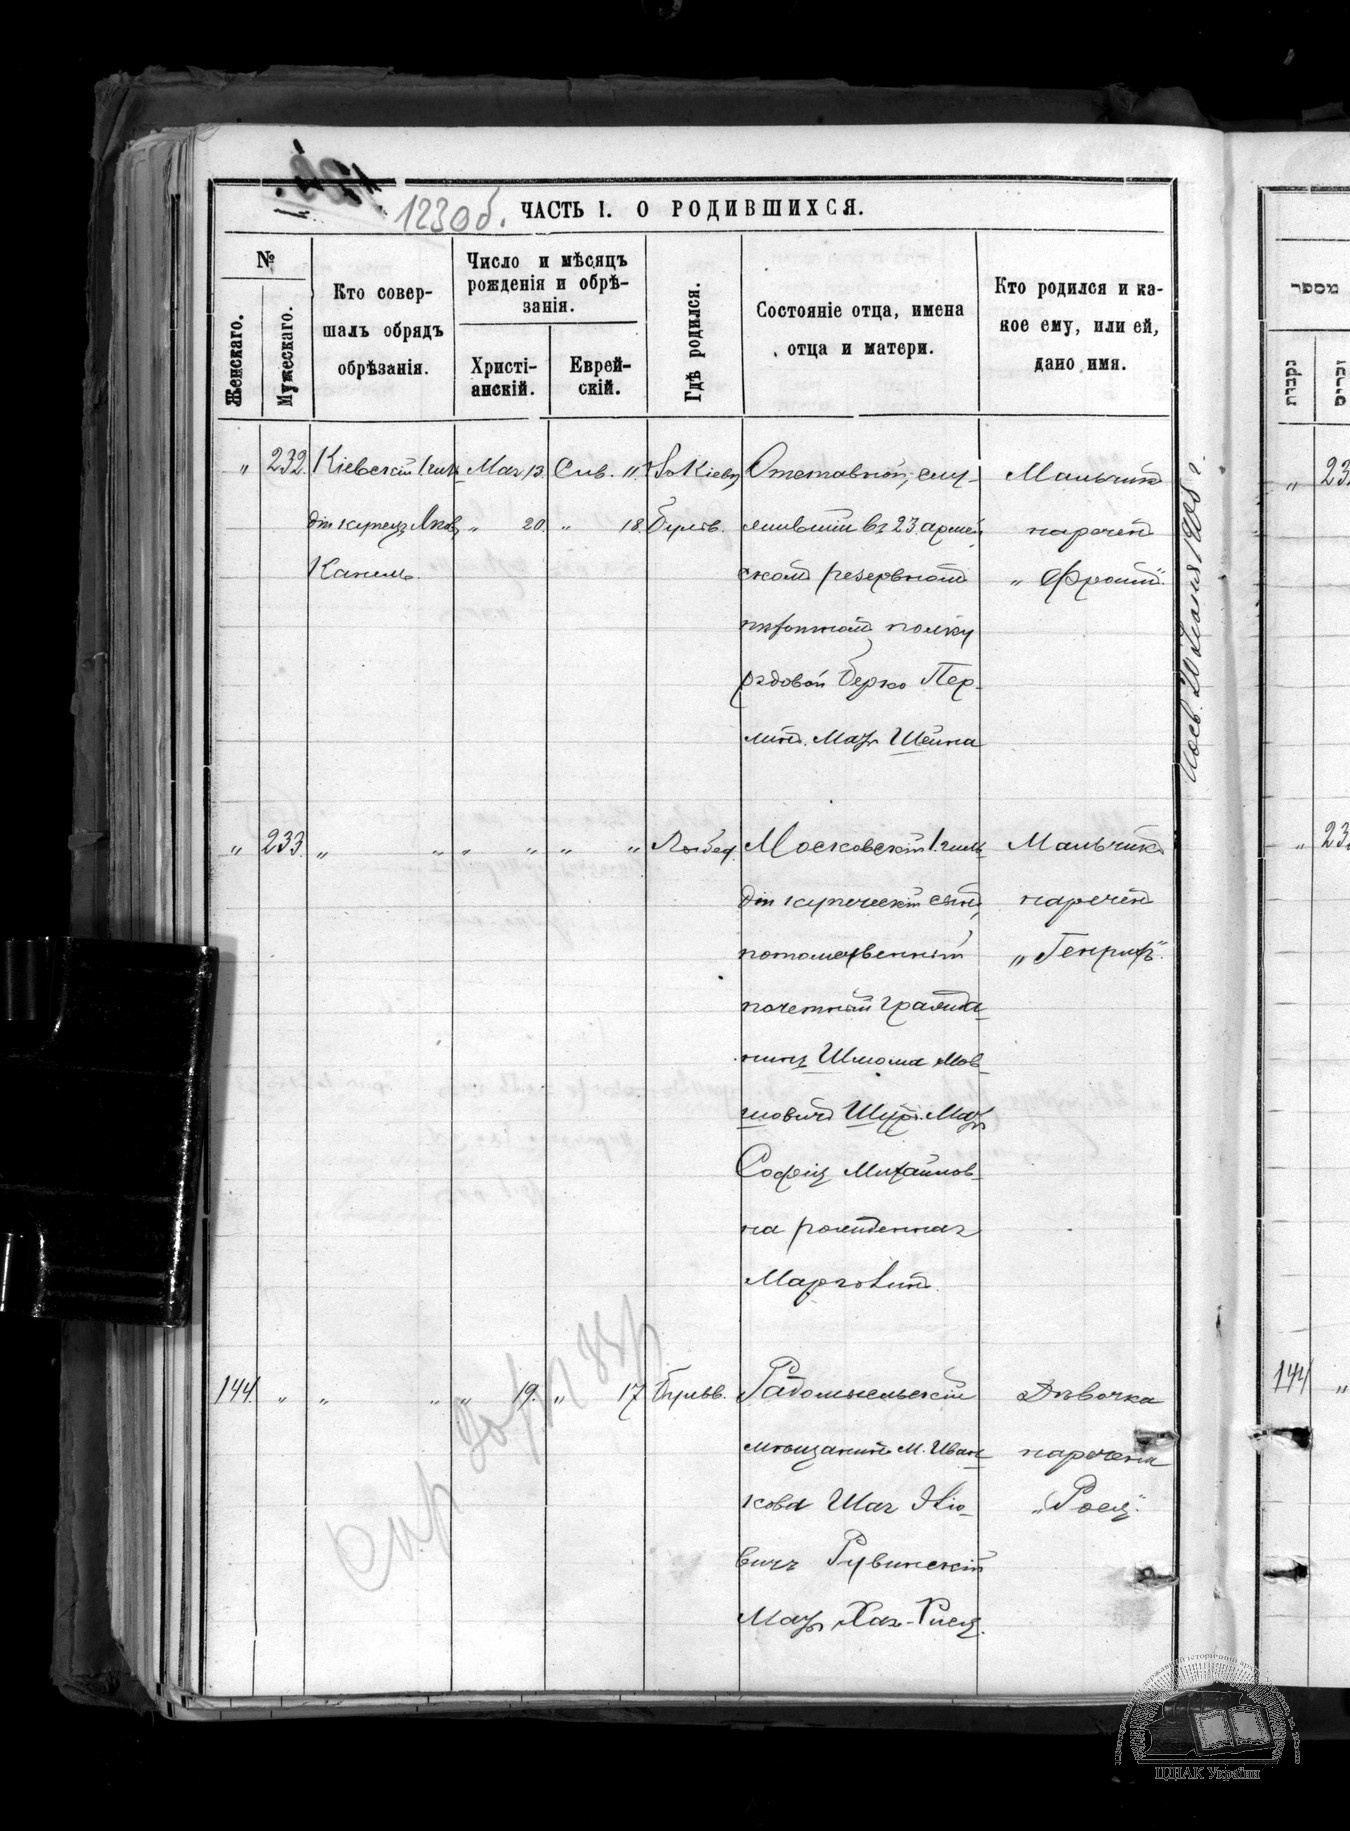 123 об. ЧАСТЬ I. О РОДИВШИХСЯ.
№
Женскаго.
Мужескаго.
Кто совер-
шалъ обрядъ
обрѣзанія.
Число и мѣсяцъ
рожденія и обрѣ-
занія.
Христі-
анскій.
Еврей-
скій.
Гдѣ родился.
Состояніе отца, имена
отца и матери.
Кто родился и ка-
кое ему, или ей,
дано имя.
„ 232. Кіевскій 1 гиль
діи купецъ Яковъ
Канель.
Мая 13.
„ 20.
Сив. 11.
„ 18.
Въ Кіевѣ
Бульв.
Отставной, слу-
жившій въ 23 армей
скомъ резервномъ
пѣхотномъ полку
рядовой Берко Пер-
линъ. Мать Шейна
Мальчикъ
нареченъ
„Фроимъ“.
Іюня 1908 г.
„ 233. „ „ „ „ „ „ Лыбед.
Московскій 1 гиль
діи купеческій сынъ,
потомственный
почетный гражда-
нинъ Шлома Мов-
шовичъ Мать
Софія Михайлов-
на рожденная
Марголинъ.
Мальчикъ
нареченъ
„Генрихъ“.
144. „ „ „ „ 19. „ 17. Бульв.
Радомысльскій
мѣщанинъ м. Иван-
кова Шая
вичъ Рувинскій
Мать Хая-
Дѣвочка
наречена
„Рося“.
מספר
נקבות
זכרים
„
„
144 „
ЦДІАК України